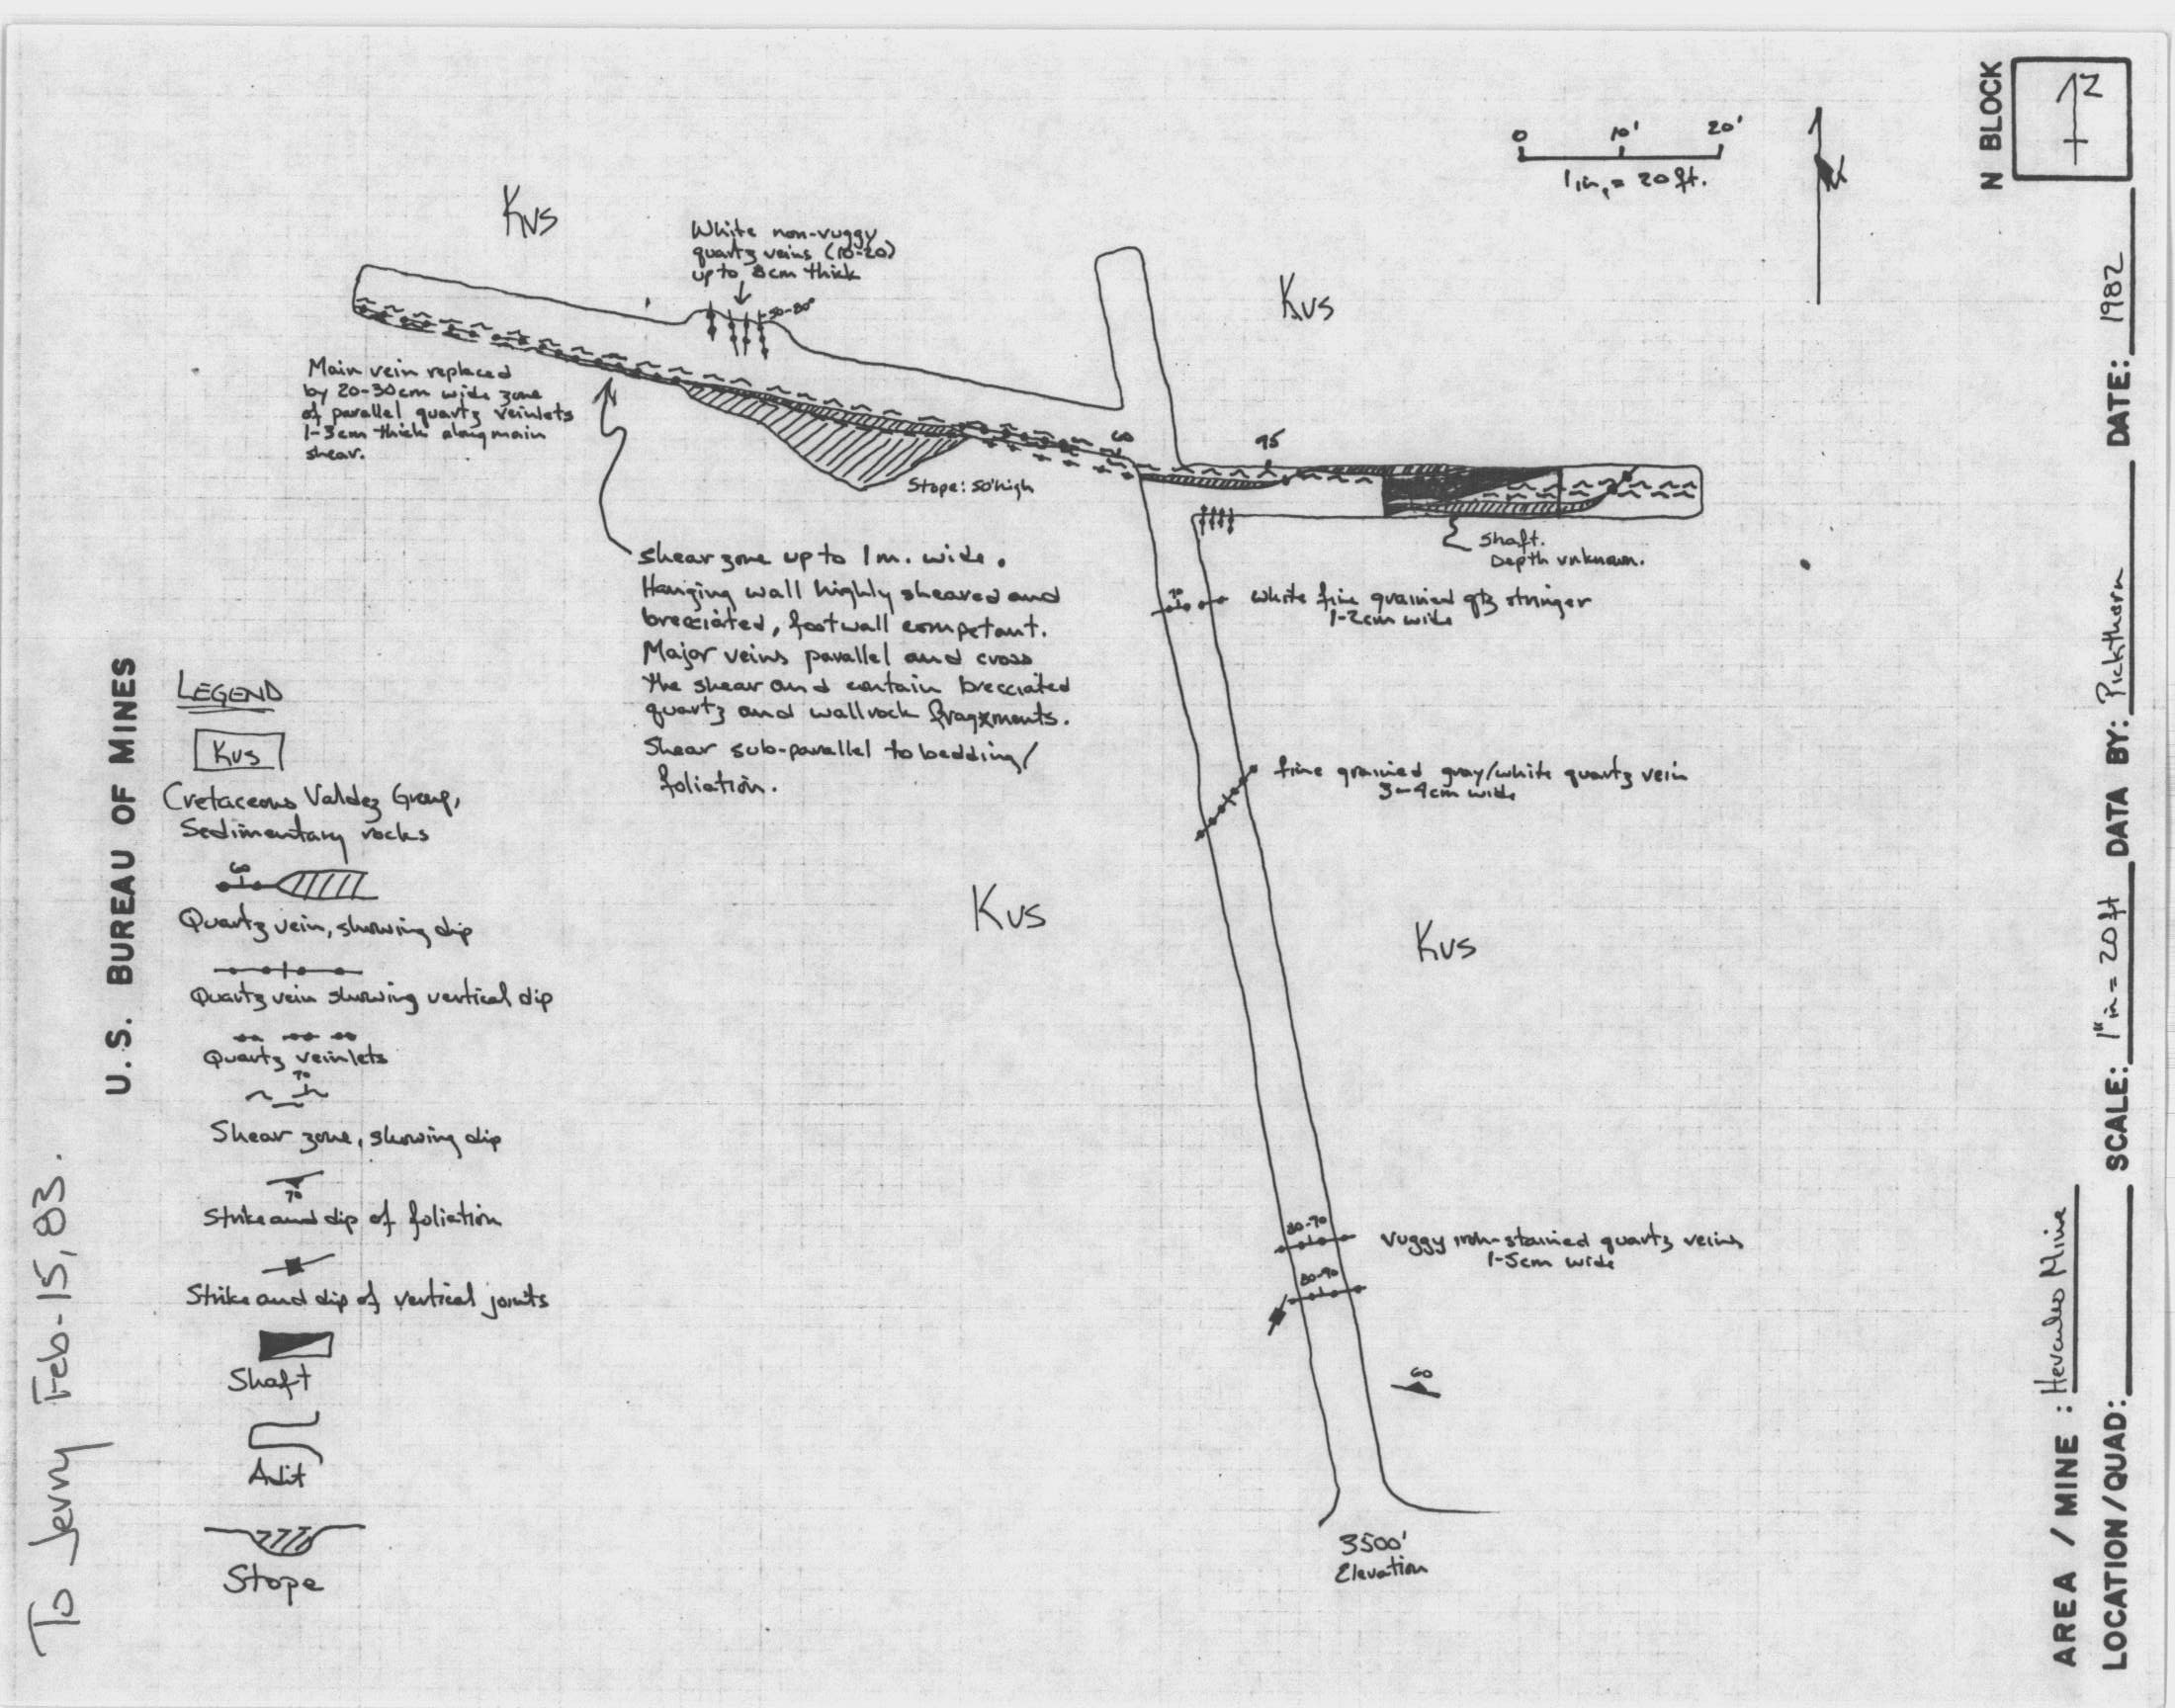 0 10' 20'
1 in, = 20 ft.
N
N BLOCK
N
Kvs
White non-vuggy
quartz veins (10-20)
up to 8cm thick
50-80°
Kvs
Main vein replaced
by 20-30cm wide zone
of parallel quartz veinlets
1-3cm thick along main
shear.
60
Stope: 50' high
Shaft.
Depth unknown.
shear zone up to 1m. wide.
Hanging wall highly sheared and
brecciated, footwall competant.
Major veins parallel and cross
the shear and contain brecciated
quartz and wallrock fragments.
Shear sub-parallel to bedding/
foliation.
70
White fine grained qtz stringer
1-2cm wide
fine grained gray/white quartz vein
3-4cm wide
Kvs
Kvs
80-70
Vuggy iron-stained quartz veins
1-5cm wide
80-90
60
3500'
Elevation
LEGEND
Kvs
Cretaceous Valdez Group,
Sedimentary rocks
60
Quartz vein, showing dip
Quartz vein showing vertical dip
Quartz veinlets
70
Shear zone, showing dip
70
Strike and dip of foliation
Strike and dip of vertical joints
Shaft
Adit
Stope
U.S. BUREAU OF MINES
To Jerry Feb-15, 83.
AREA / MINE : Hercules Mine
LOCATION/QUAD: SCALE: 1" in = 20 ft DATA BY: Pickthorn DATE: 1982